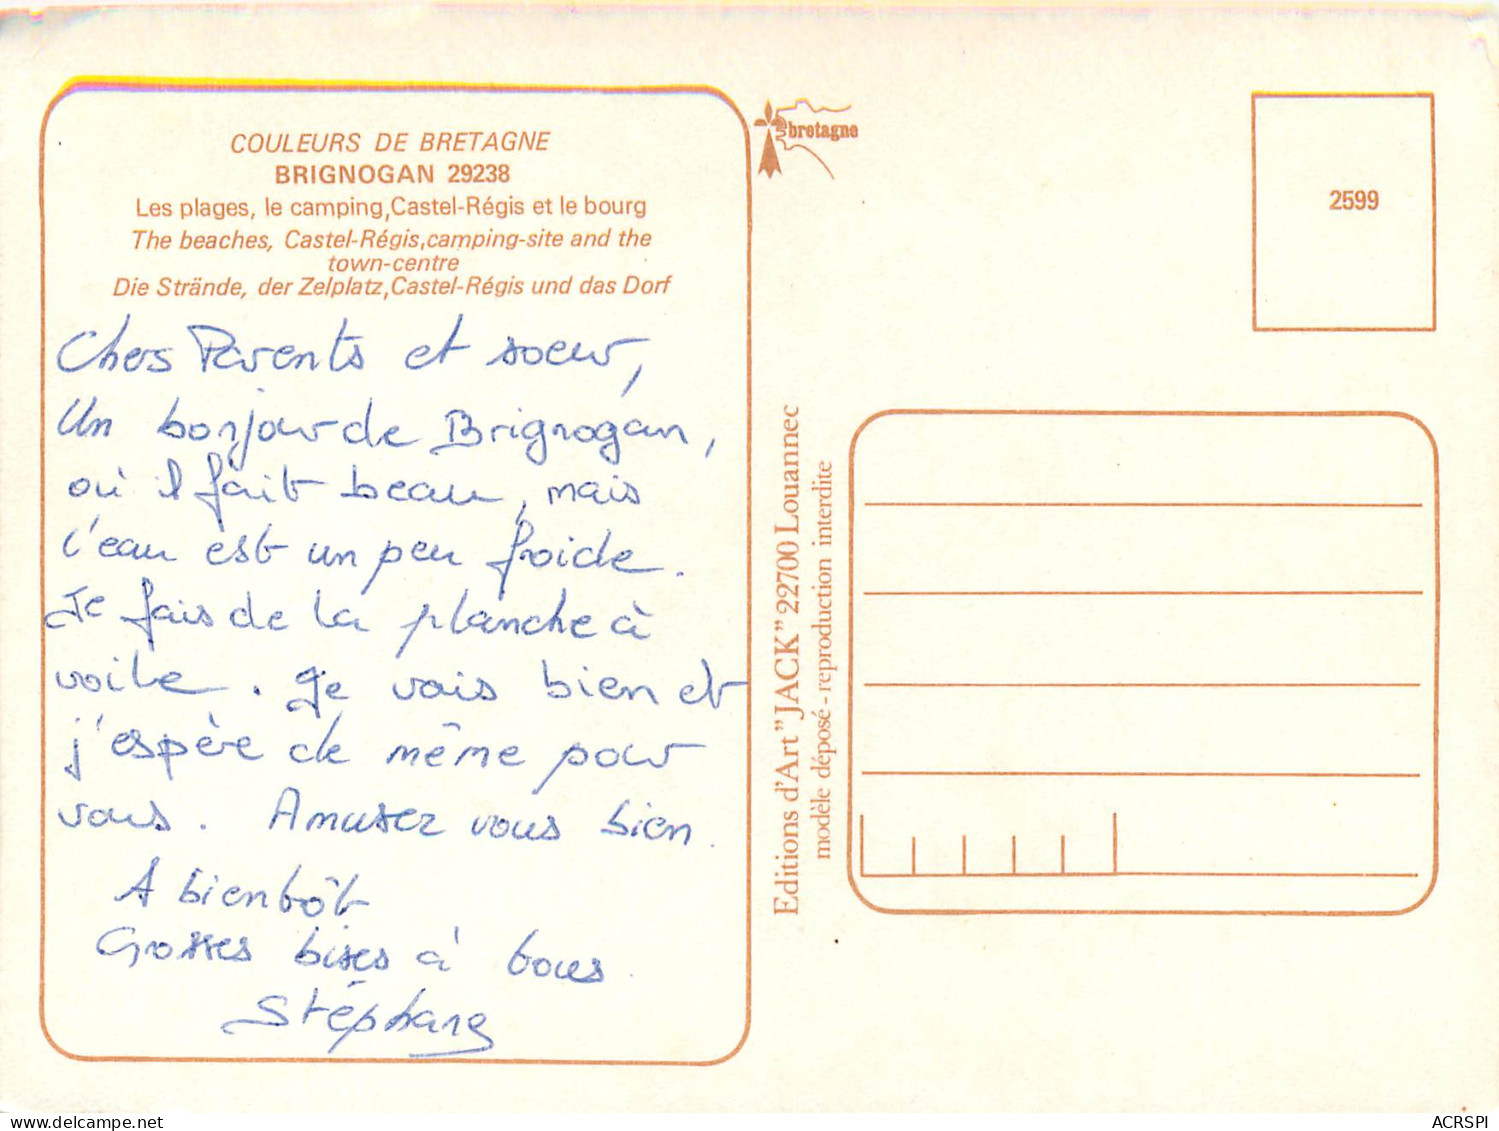 COULEURS DE BRETAGNE
BRIGNOGAN 29238
Les plages, le camping, Castel-Régis et le bourg
The beaches, Castel-Régis, camping-site and the
town-centre
Die Strände, der Zelplatz, Castel-Régis und das Dorf
Chers Parents et soeur,
Un bonjour de Brignogan,
où il fait beau, mais
l'eau est un peu froide.
Je fais de la planche à
voile. Je vais bien et
j'espère de même pour
vous. Amusez vous bien.
A bientôt
Grosses bises à tous.
Stéphane
bretagne
2599
Editions d'Art "JACK" 22700 Louannec
modèle déposé - reproduction interdite
ACRSPI